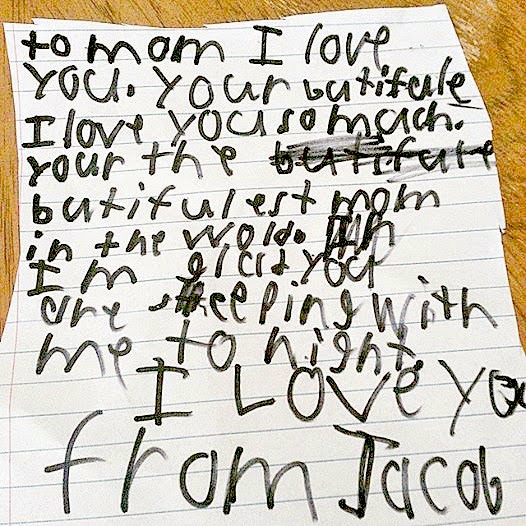 to mom I love
you. your butifule
I love you so mach.
your the butifule
butifulest mom
in the wold.
I m glad you
are sleeping with
me to night.
I Love you
from Jacob